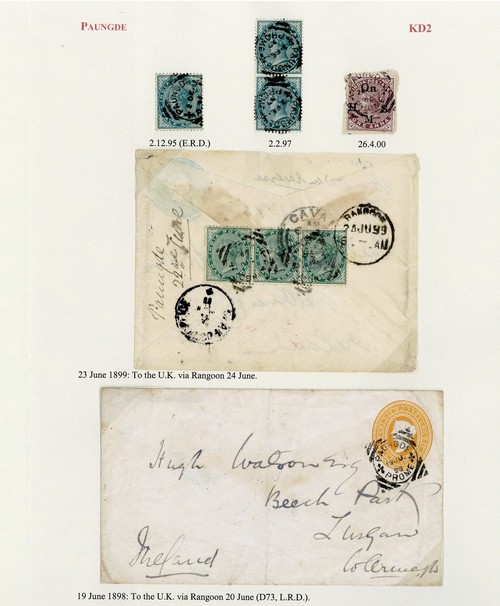 PAUNGDE
KD2
On
H S
M
2.12.95 (E.R.D.)
2.2.97
26.4.00
Paungde
22nd June
RANGOON
24 JU 99
AM
23 June 1899: To the U.K. via Rangoon 24 June.
PROME
Hugh Watson Esq
Beech Park
Lurgan
Co Armagh
Ireland
19 June 1898: To the U.K. via Rangoon 20 June (D73, L.R.D.).